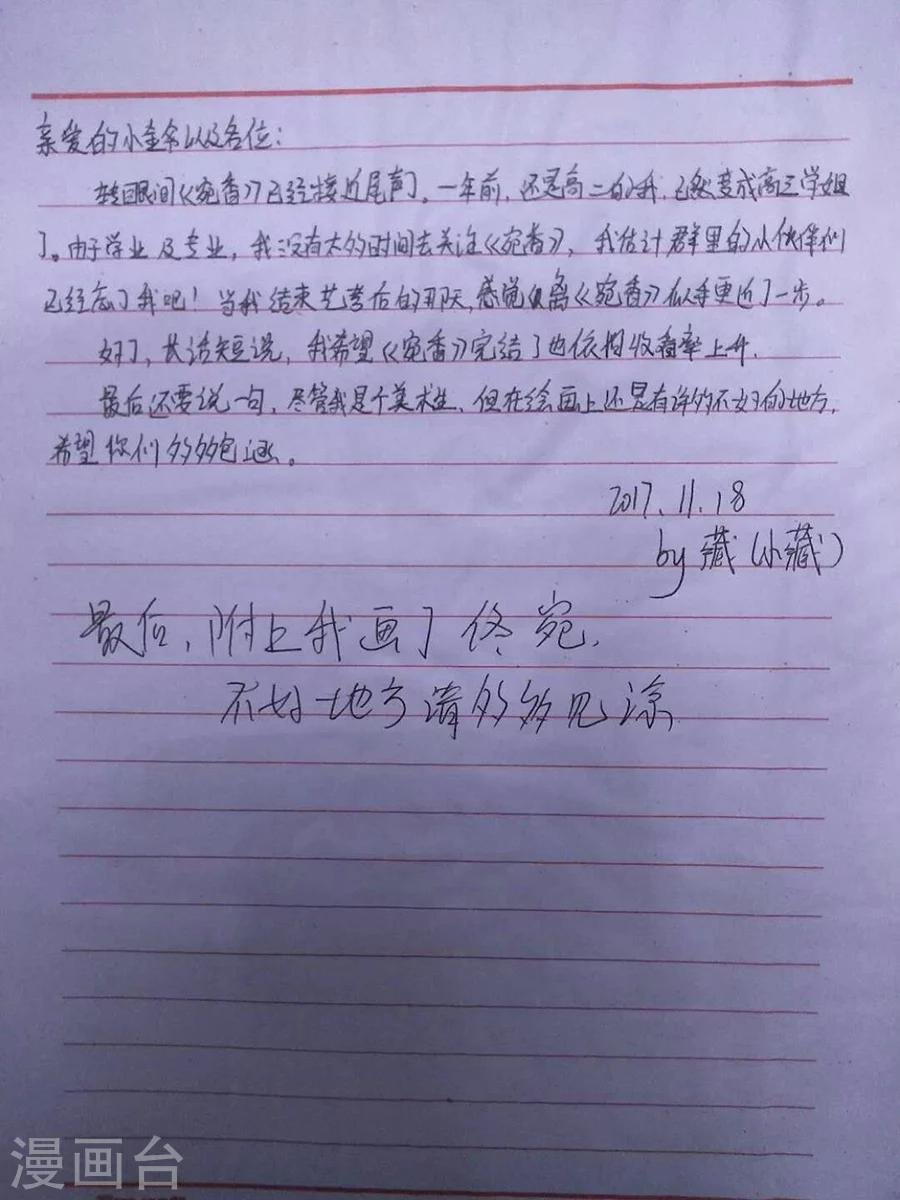 亲爱的小金爷以及各位：
转眼间《宛香》已经接近尾声了。一年前，还是高二的我，已然变成高三学姐
了。由于学业及专业，我没有太多时间去关注《宛香》，我估计群里的小伙伴们
已经忘了我吧！当我结束艺考后的那天，感觉离《宛香》似乎更近了一步。
好了，长话短说，我希望《宛香》完结了也依旧收看率上升。
最后还要说一句，尽管我是个美术生，但在绘画上还是有许多不好的地方，
希望你们多多包涵。
2017.11.18
by 藏（小藏）
最后，附上我画了佟宛，
不好地方请多多见谅
漫画台